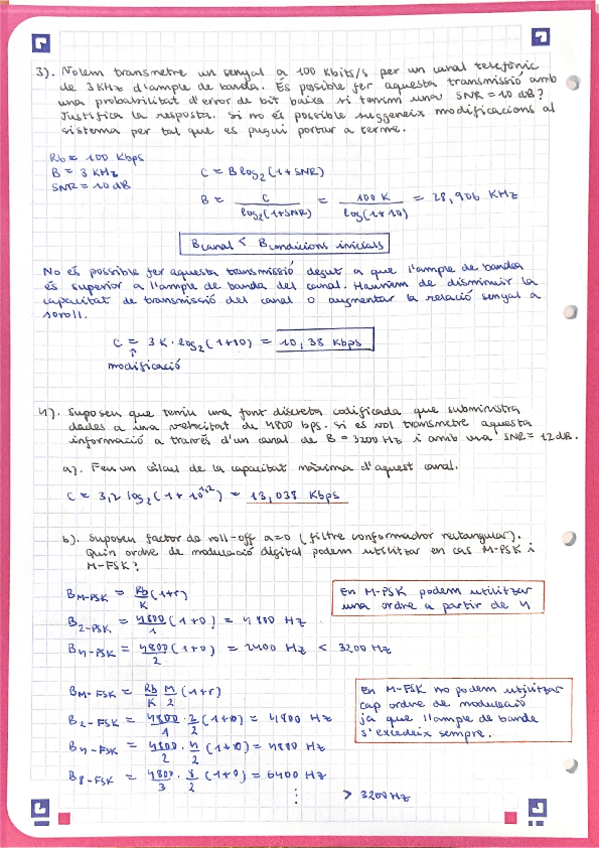 3). Volem transmetre un senyal a 100 Kbits/s per un canal telefònic
de 3 KHz d'ample de banda. És possible fer aquesta transmissió amb
una probabilitat d'error de bit baixa si tenim una SNR = 10 dB?
Justifica la resposta. Si no és possible suggereix modificacions al
sistema per tal que es pugui portar a terme.
Rb = 100 Kbps
B = 3 KHz
SNR = 10 dB
C = B log2 (1+SNR)
B = C / log2(1+SNR) = 100 K / log(1+10) = 28,906 KHz
Bcanal < Bcondicions inicials
No és possible fer aquesta transmissió degut a que l'ample de banda
és superior a l'ample de banda del canal. Hauríem de disminuir la
capacitat de transmissió del canal o augmentar la relació senyal a
soroll.
C = 3 K · log2 (1+10) = 10,38 Kbps
↑
modificació
4). Suposeu que teniu una font discreta codificada que subministra
dades a una velocitat de 4800 bps. Si es vol transmetre aquesta
informació a través d'un canal de B = 3200 Hz i amb una SNR = 12 dB.
a). Feu un càlcul de la capacitat màxima d'aquest canal.
C = 3,2 log2 (1 + 10^1,2) = 13,038 Kbps
b). Suposeu factor de roll-off a=0 (filtre conformador rectangular).
Quin ordre de modulació digital podem utilitzar en cas M-PSK i
M-FSK?
B M-PSK = Rb/K (1+r)
B 2-PSK = 4800/1 (1+0) = 4800 Hz
B 4-PSK = 4800/2 (1+0) = 2400 Hz < 3200 Hz
En M-PSK podem utilitzar
una ordre a partir de 4
B M-FSK = Rb/K M/2 (1+r)
B 2-FSK = 4800/1 · 2/2 (1+0) = 4800 Hz
B 4-FSK = 4800/2 · 4/2 (1+0) = 4800 Hz
B 8-FSK = 4800/3 · 8/2 (1+0) = 6400 Hz
⋮ > 3200 Hz
En M-FSK no podem utilitzar
cap ordre de modulació
ja que l'ample de banda
s'excedeix sempre.